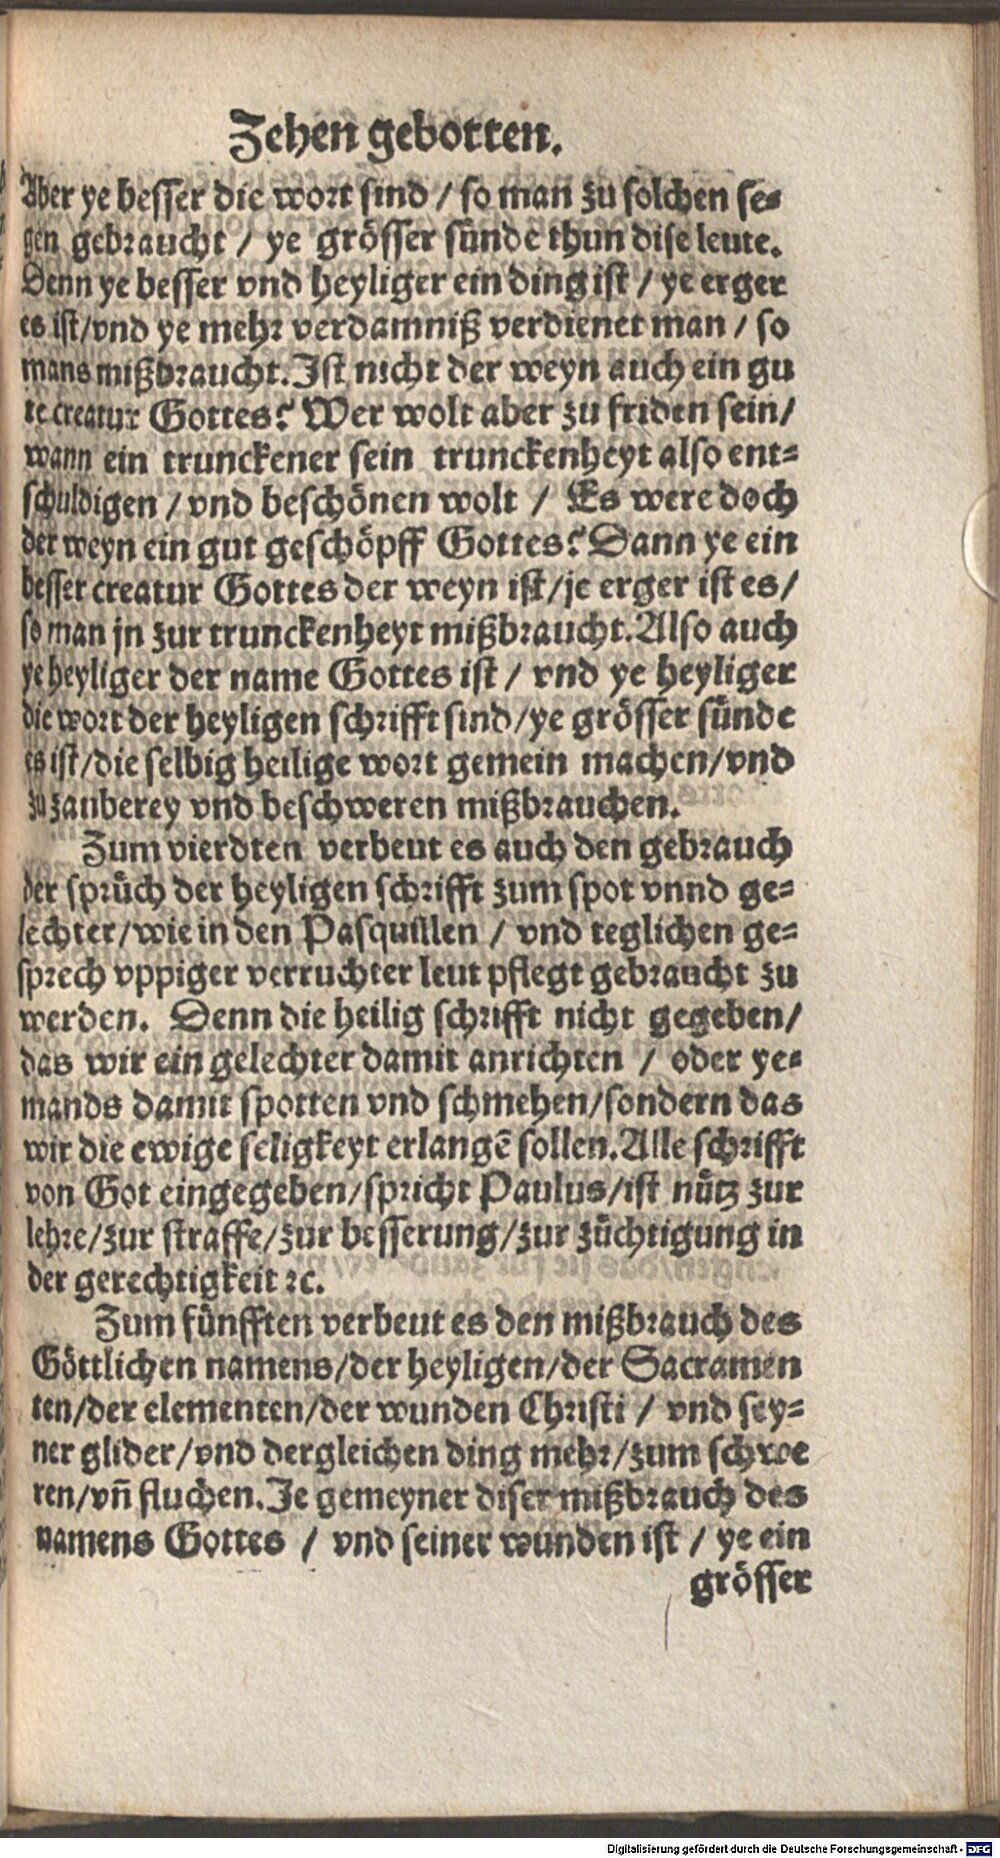 Zehen gebotten.
Aber ye besser die wort sind / so man zu solchen se-
gen gebraucht / ye grösser sünde thun dise leute.
Denn ye besser vnd heyliger ein ding ist / ye erger
es ist/vnd ye mehr verdamniß verdienet man / so
mans mißbraucht. Ist nicht der weyn auch ein gu
te creatur Gottes? Wer wolt aber zu friden sein/
wann ein trunckener sein trunckenheyt also ent-
schuldigen / vnd beschönen wolt / Es were doch
der weyn ein gut geschöpff Gottes? Dann ye ein
besser creatur Gottes der weyn ist/je erger ist es/
so man jn zur trunckenheyt mißbraucht. Also auch
ye heyliger der name Gottes ist / vnd ye heyliger
die wort der heyligen schrifft sind/ye grösser sünde
es ist/die selbig heilige wort gemein machen/vnd
zu zauberey vnd beschweren mißbrauchen.
Zum vierdten verbeut es auch den gebrauch
der sprüch der heyligen schrifft zum spot vnnd ge-
lechter/wie in den Pasquillen / vnd teglichen ge-
sprech vppiger verruchter leut pflegt gebraucht zu
werden. Denn die heilig schrifft nicht gegeben/
das wir ein gelechter damit anrichten / oder ye-
mands damit spotten vnd schmehen/sondern das
wir die ewige seligkeyt erlangē sollen. Alle schrifft
von Got eingegeben/spricht Paulus/ist nütz zur
lehre/zur straffe/zur besserung/zur züchtigung in
der gerechtigkeit ꝛc.
Zum fünfften verbeut es den mißbrauch des
Göttlichen namens/der heyligen/der Sacramen
ten/der elementen/der wunden Christi / vnd sey-
ner glider/vnd dergleichen ding mehr/zum schwe
ren/vn̄ fluchen. Je gemeyner diser mißbrauch des
namens Gottes / vnd seiner wunden ist / ye ein
grösser
Digitalisierung gefördert durch die Deutsche Forschungsgemeinschaft - DFG